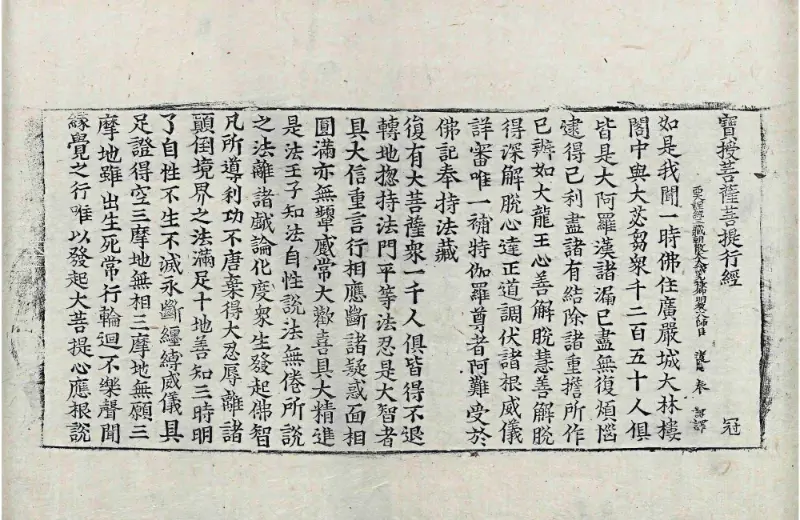 寶授菩薩菩提行經 冠
西天譯經三藏朝散大夫試鴻臚少卿明教大師臣 法賢 奉 詔譯
如是我聞一時佛住廣嚴城大林樓
閣中與大苾芻衆千二百五十人俱
皆是大阿羅漢諸漏已盡無復煩惱
逮得己利盡諸有結除諸重擔所作
已辦如大龍王心善解脫慧善解脫
得深解脫心達正道調伏諸根威儀
詳審唯一補特伽羅尊者阿難受於
佛記奉持法藏
復有大菩薩衆一千人俱皆得不退
轉地揔持法門平等法忍具大智者
具大信重言行相應斷諸疑惑面相
圓滿亦無顰蹙常大歡喜具大精進
是法王子知法自性說法無倦所說
之法離諸戲論化度衆生發起佛智
凡所導利功不唐棄得大忍辱離諸
顛倒境界之法滿足十地善知三時明
了自性不生不滅永斷纏縛威儀具
足證得空三摩地無相三摩地無願三
摩地雖出生死常行輪迴不樂聲聞
緣覺之行唯以發起大菩提心應根說